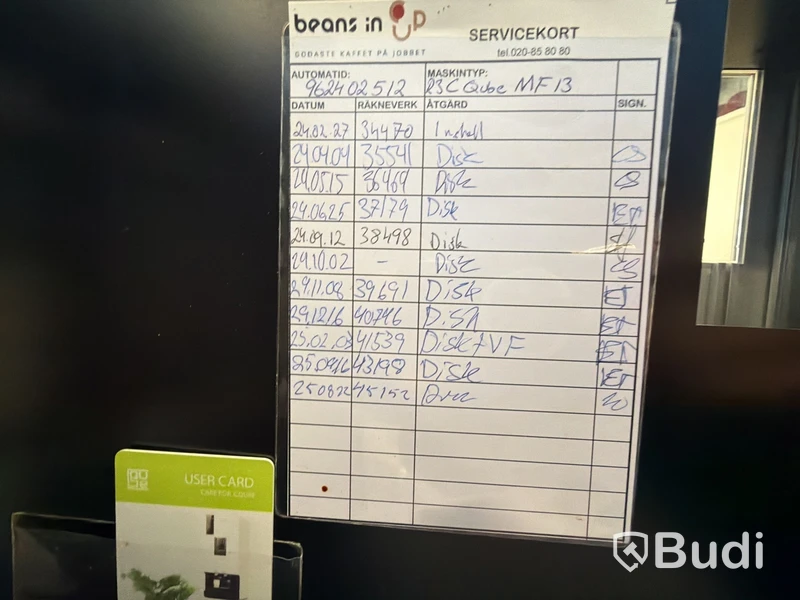 beans in UP
GODASTE KAFFET PÅ JOBBET
SERVICEKORT
tel.020-85 80 80
AUTOMATID: 9624 02 512 MASKINTYP: 23C Qube MF 13
DATUM RÄKNEVERK ÅTGÄRD SIGN.
24.02.27 34470
24.04.04 35541 Disk CS
24.05.15 36464 Disk CS
24.06.25 37179 Disk ET
24.09.12 38498 Disk
24.10.02 - Disk CS
24.11.08 39691 Disk ET
24.12.16 40746 Disk ET
25.02.03 41539 Disk+VF ET
25.0416 43198 Disk ET
250822 45152
USER CARD
Budi